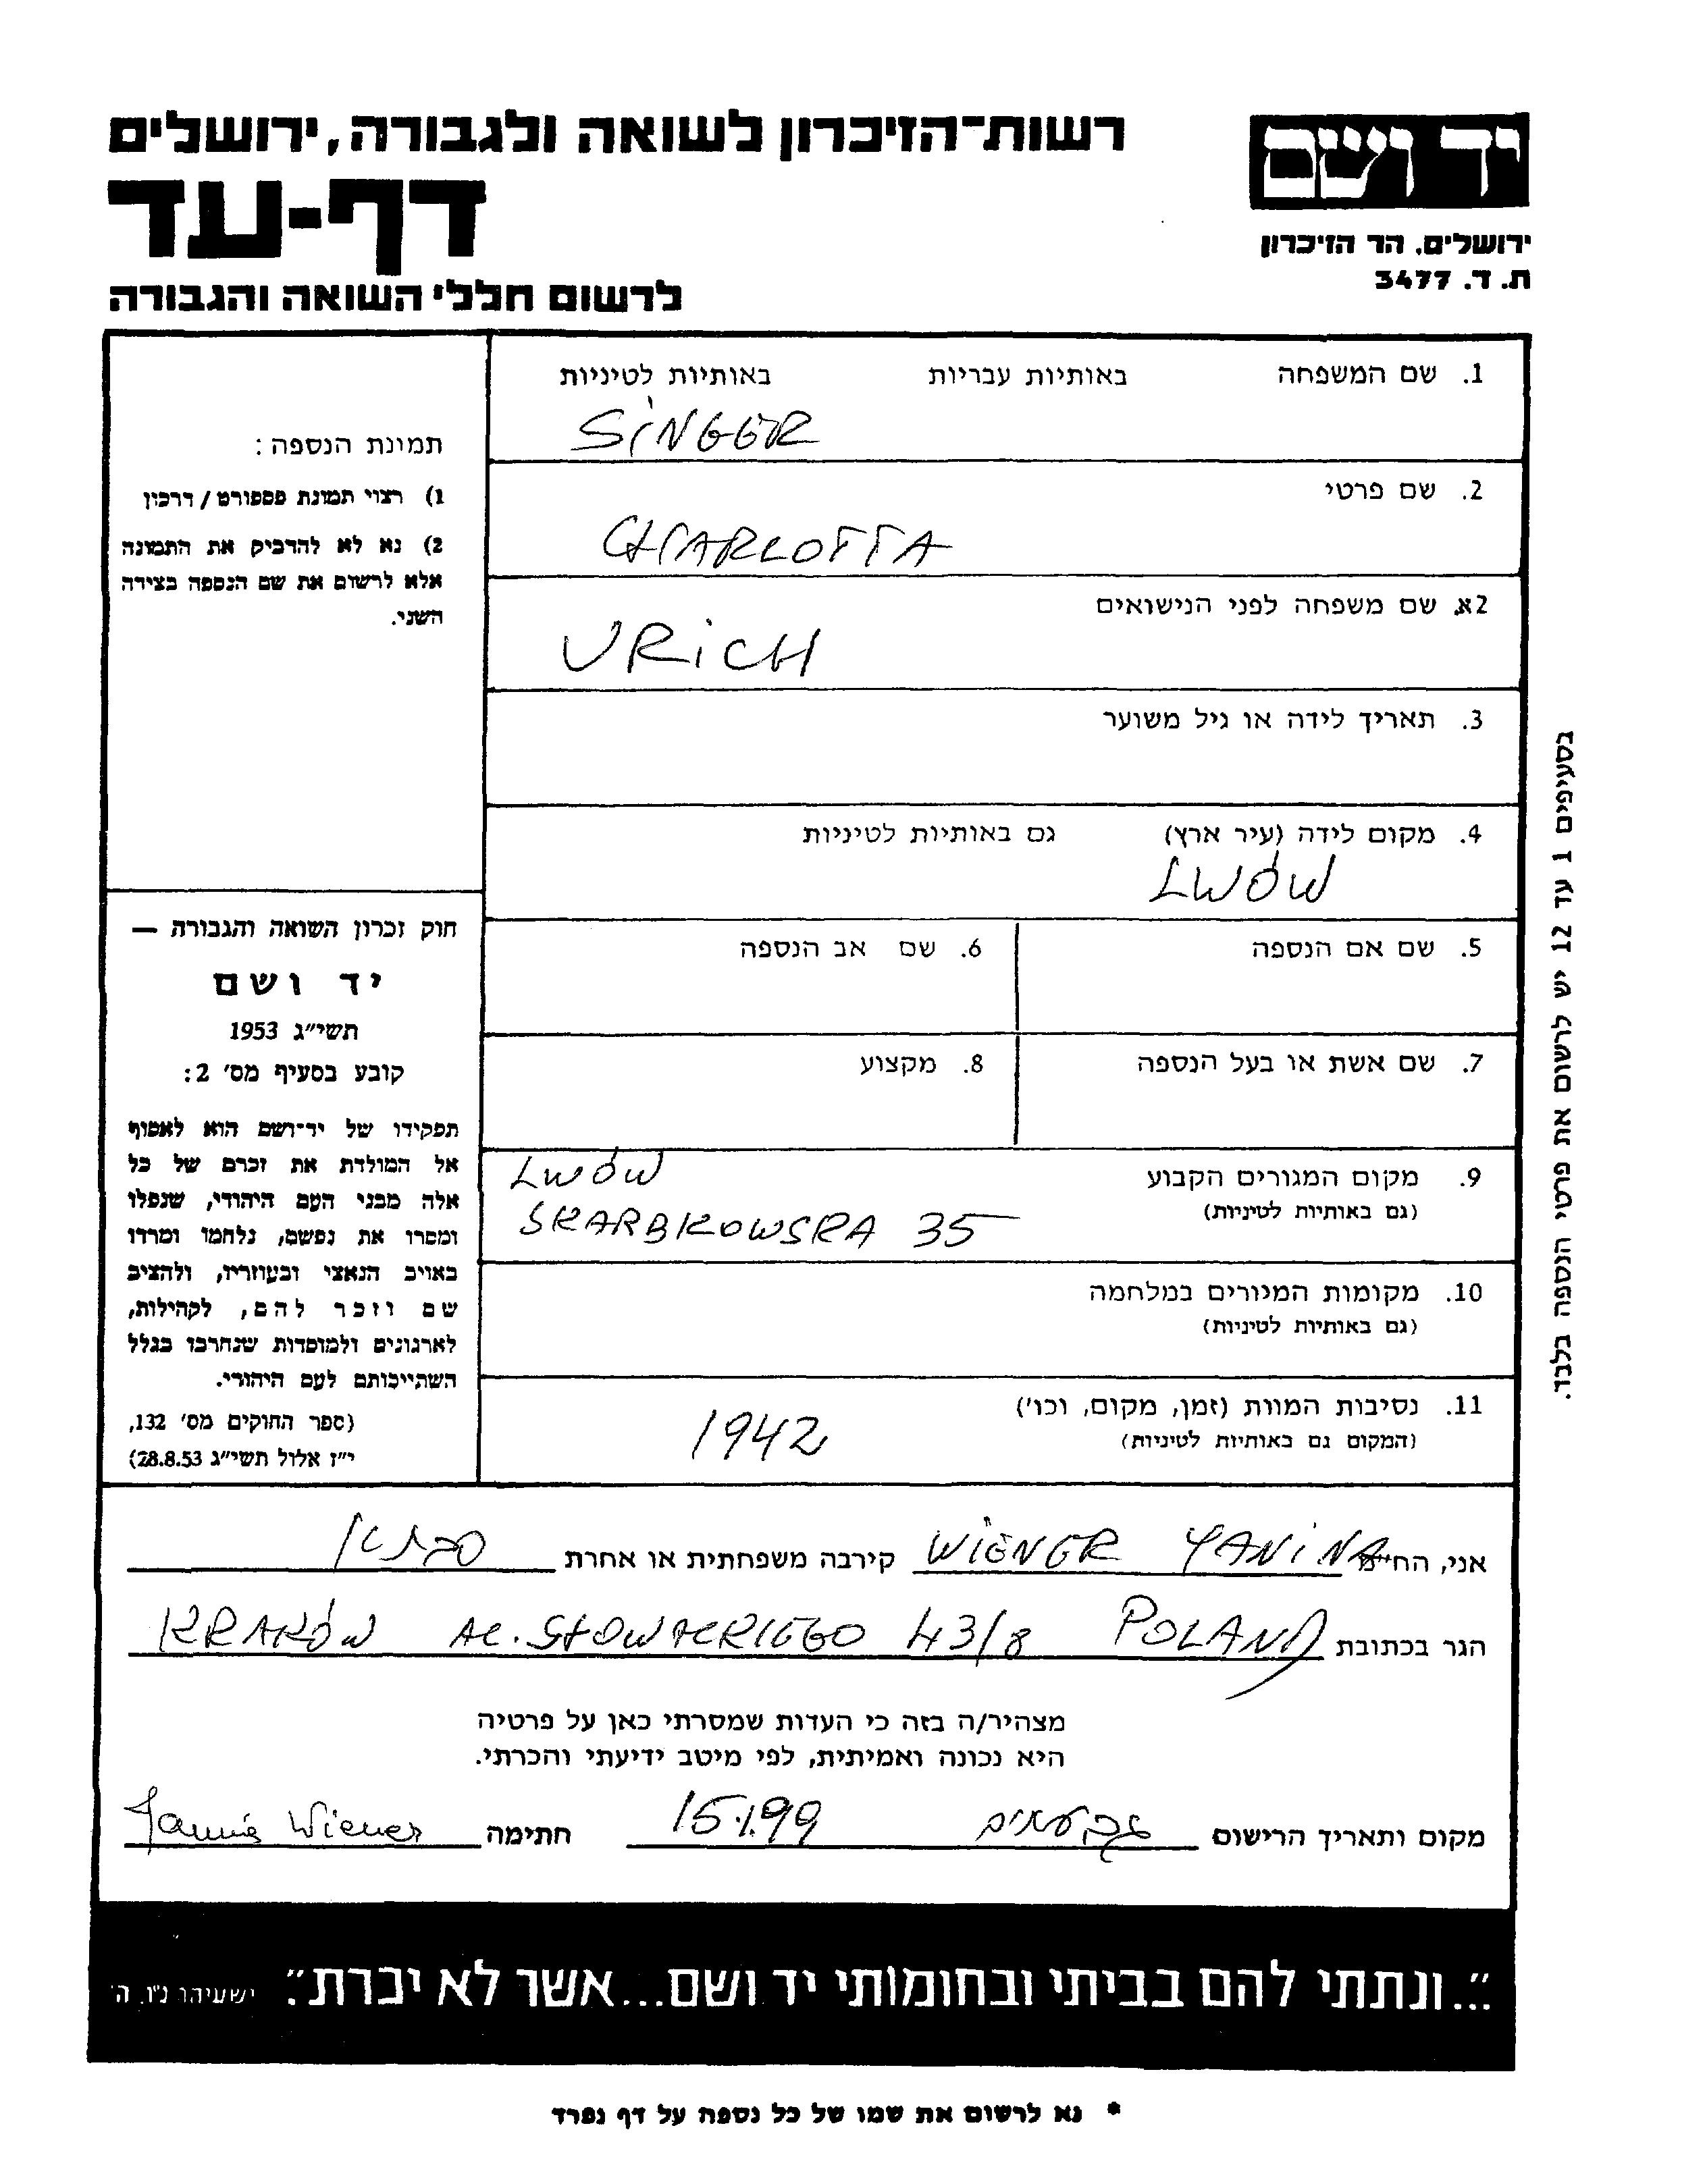 יד ושם
ירושלים. הר הזיכרון
ת. ד. 3477
רשות-הזיכרון לשואה ולגבורה, ירושלים
דף-עד
לרשום חללי השואה והגבורה
1. שם המשפחה באותיות עבריות באותיות לטיניות
SINGER
2. שם פרטי
CHARLOTTA
2א. שם משפחה לפני הנישואים
URICH
3. תאריך לידה או גיל משוער
4. מקום לידה (עיר ארץ) גם באותיות לטיניות
LWÓW
5. שם אם הנספה
6. שם אב הנספה
7. שם אשת או בעל הנספה
8. מקצוע
9. מקום המגורים הקבוע LWÓW
(גם באותיות לטיניות) SKARBKOWSKA 35
10. מקומות המגורים במלחמה
(גם באותיות לטיניות)
11. נסיבות המוות (זמן, מקום, וכו') 1942
(המקום גם באותיות לטיניות)
תמונת הנספה:
1) רצוי תמונת פספורט / דרכון
2) נא לא להדביק את התמונה
אלא לרשום את שם הנספה בצידה
השני.
חוק זכרון השואה והגבורה —
יד ושם
תשי"ג 1953
קובע בסעיף מס' 2:
תפקידו של יד־ושם הוא לאסוף
אל המולדת את זכרם של כל
אלה מבני העם היהודי, שנפלו
ומסרו את נפשם, נלחמו ומרדו
באויב הנאצי ובעוזריו, ולהציב
שם וזכר להם, לקהילות,
לארגונים ולמוסדות שנחרבו בגלל
השתייכותם לעם היהודי.
(ספר החוקים מס' 132,
י"ז אלול תשי"ג 28.8.53)
בסעיפים 1 עד 12 יש לרשום את פרטי הנספה בלבד.
אני, הח"מ WIENER YANINA קירבה משפחתית או אחרת
הגר בכתובת KRAKÓW AL. SŁOWACKIEGO 43/8 POLAND
מצהיר/ה בזה כי העדות שמסרתי כאן על פרטיה
היא נכונה ואמיתית, לפי מיטב ידיעתי והכרתי.
מקום ותאריך הרישום גבעתיים 15.1.99 חתימה Janina Wiener
"...ונתתי להם בביתי ובחומותי יד ושם...אשר לא יכרת". ישעיהו נ"ו, ה'
* נא לרשום את שמו של כל נספה על דף נפרד